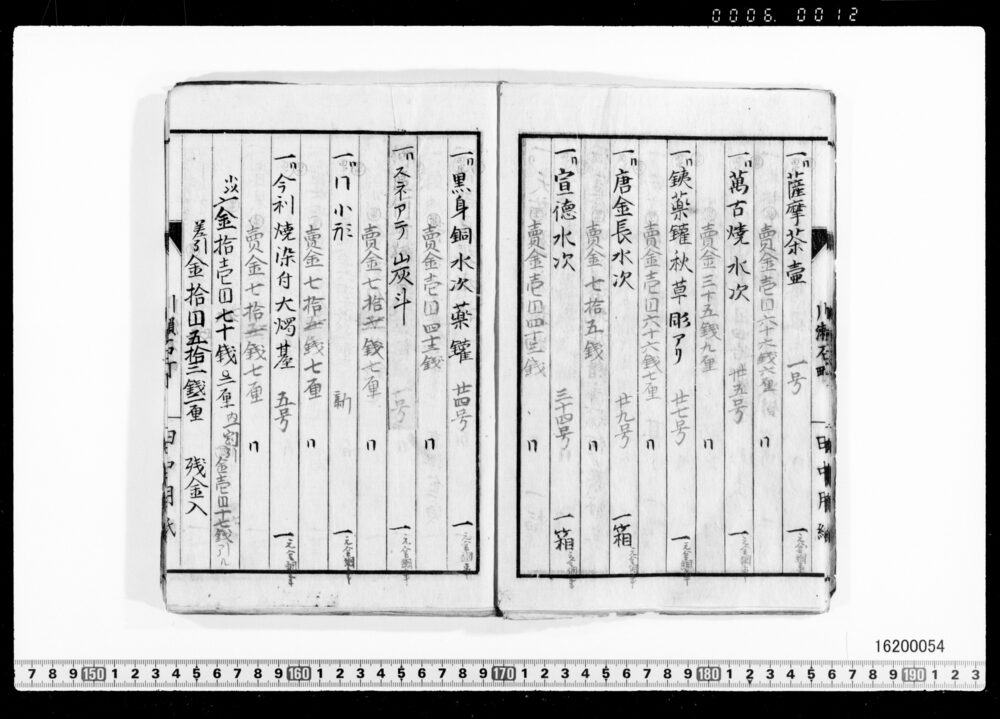 0006 0012
一〃薩摩茶壷 一号 一
賣金壱円六十六銭六厘 〃
一〃萬古焼水次 廿五号 一
賣金三十五銭九厘 〃
一〃銕薬鑵秋草彫アリ 廿七号 一
賣金壱円六十六銭七厘 〃
一〃唐金長水次 廿九号 一箱
賣金七拾五銭 〃
一〃宣徳水次 三十四号 一箱
賣金壱円四十三銭 〃
一〃黒身銅水次薬鑵 廿四号 一
賣金壱円四十三銭 〃
一〃スネアテ山灰斗 一号 一
賣金七拾五銭七厘 〃
一〃〃小形 新 一
賣金七拾五銭七厘 〃
一〃今利焼染付大燭基 五号 一
賣金七拾五銭七厘 〃
小以〆金拾壱円七十銭〇三厘
差引金拾円五拾三銭一厘 残金入
16200054
7 8 9 150 1 2 3 4 5 6 7 8 9 160 1 2 3 4 5 6 7 8 9 170 1 2 3 4 5 6 7 8 9 180 1 2 3 4 5 6 7 8 9 190 1 2 3